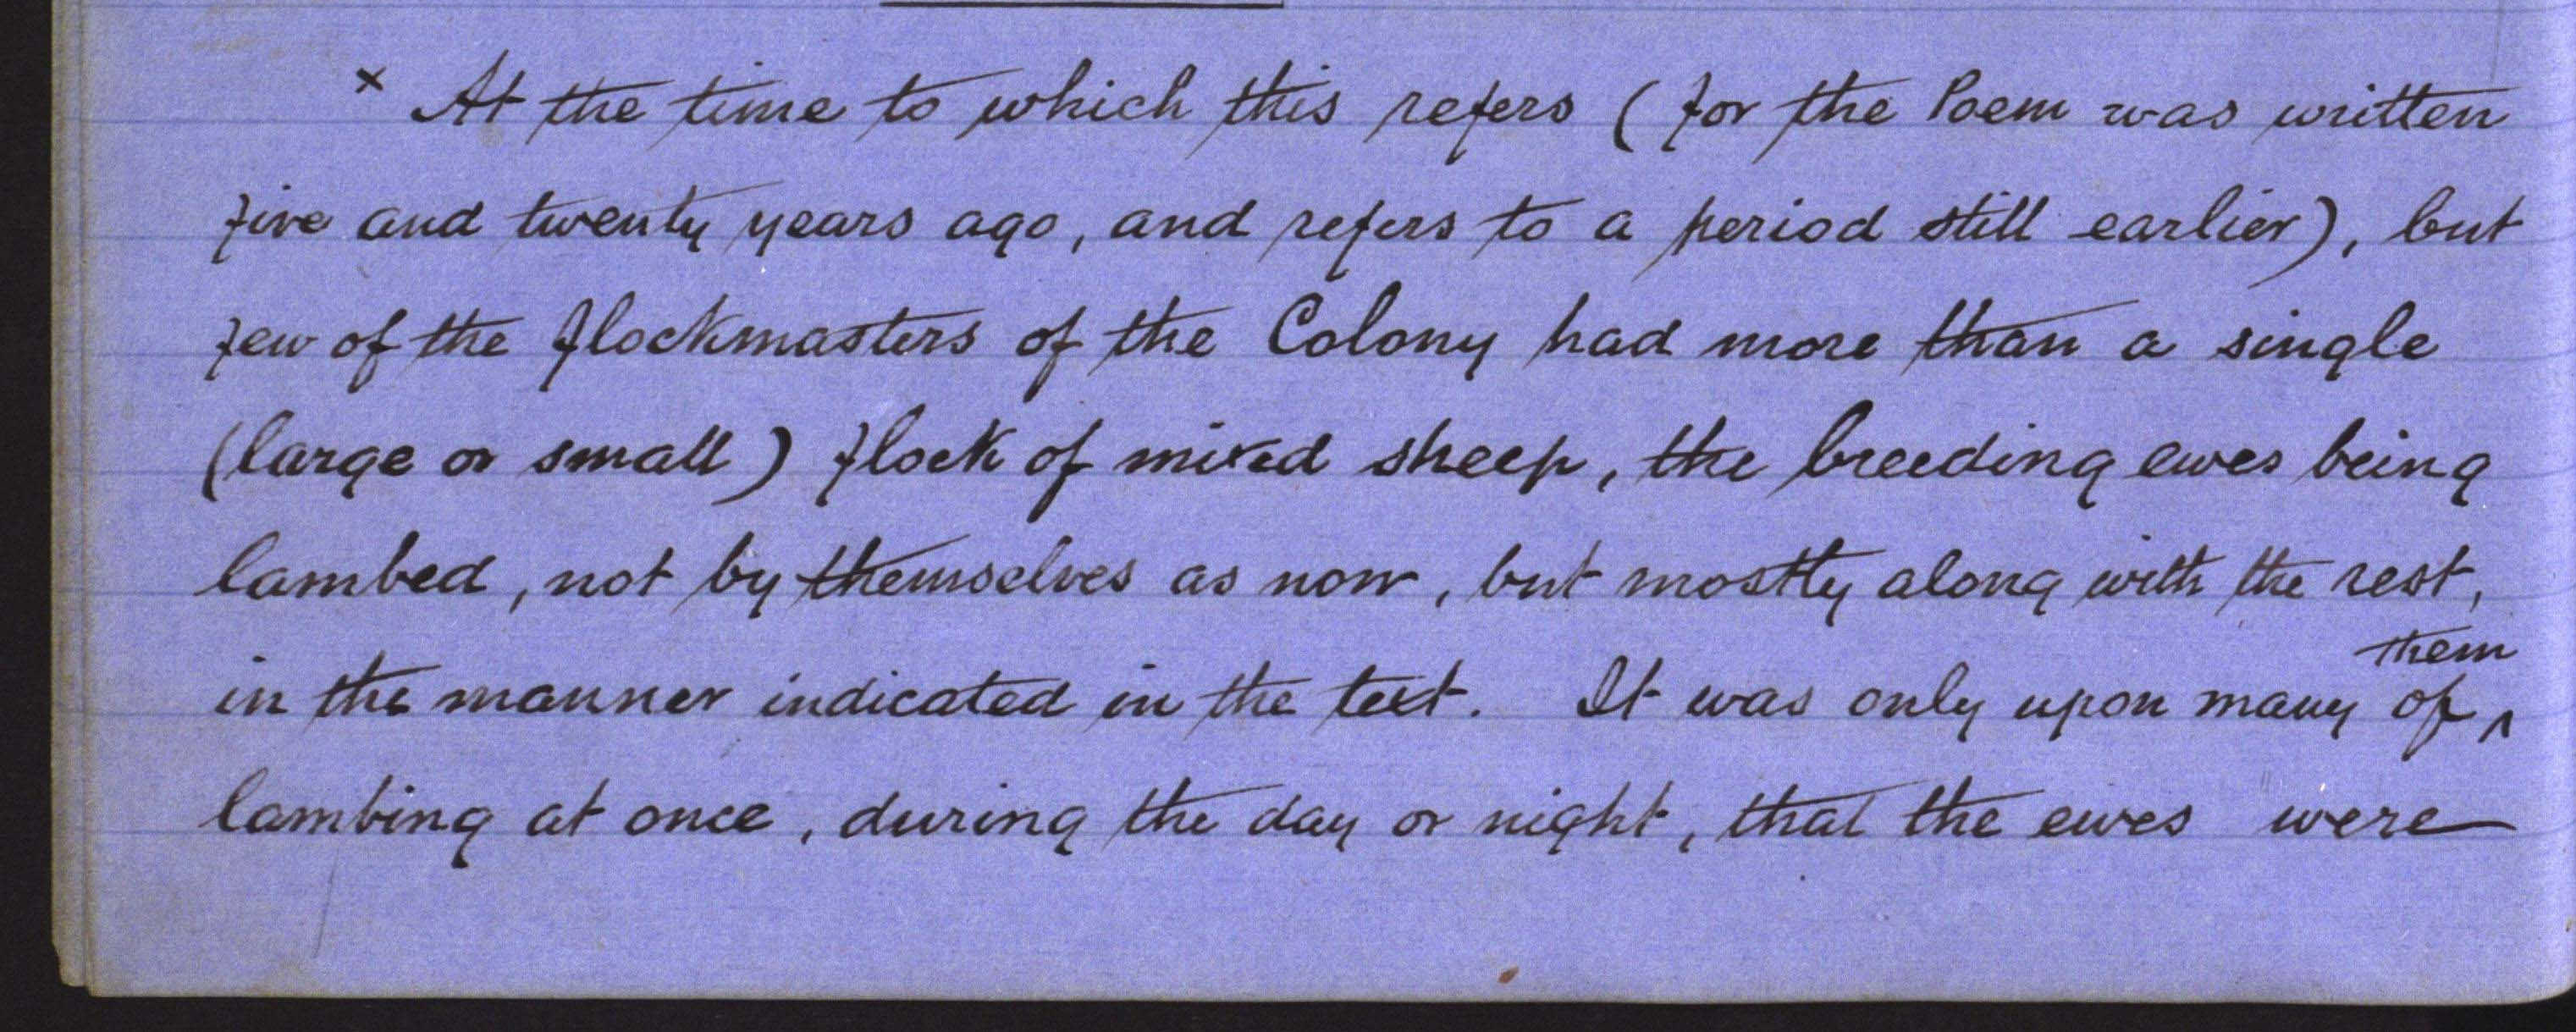 × At the time to which this refers (for the Poem was written
five and twenty years ago, and refers to a period still earlier), but
few of the flockmasters of the Colony had more than a single
(large or small) flock of mixed sheep, the breeding ewes being
lambed, not by themselves as now, but mostly along with the rest,
in the manner indicated in the text. It was only upon many of ^ them
lambing at once, during the day or night, that the ewes were